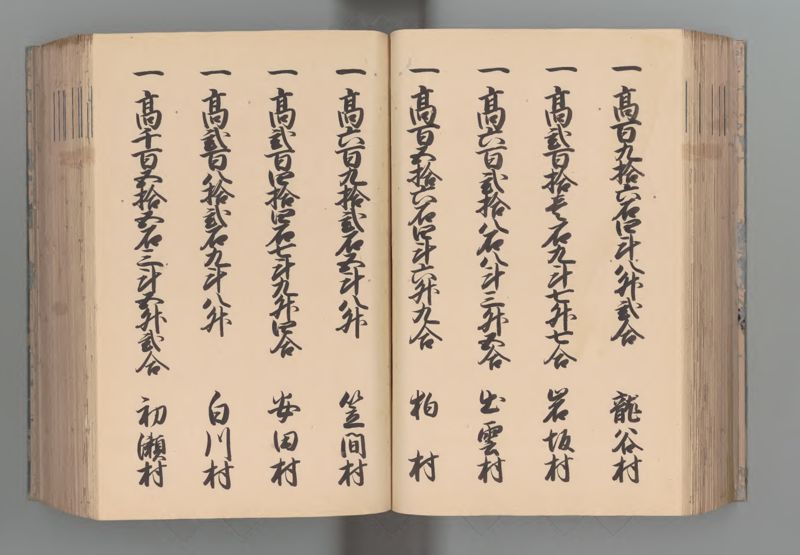 一高百九拾六石四斗八升弐合 龍谷村
一高弐百拾壱石九斗七升七合 岩坂村
一高六百弐拾八石八斗三升五合 出雲村
一高百五拾六石四斗六升九合 柏村
一高六百九拾弐石五斗八升 笠間村
一高弐百四拾四石七斗九升四合 安田村
一高弐百八拾弐石九斗八升 白川村
一高千百五拾五石三斗五升弐合 初瀬村